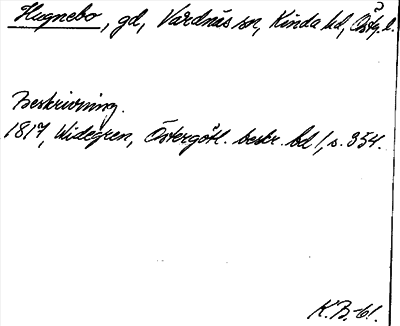 Hagnebo, gd, Vårdnäs sn, Kinda hd, Östg. l.
Beskrivning.
1817, Widegren, Östergötl. beskr. bd 1, s. 354.
K.B. -61.